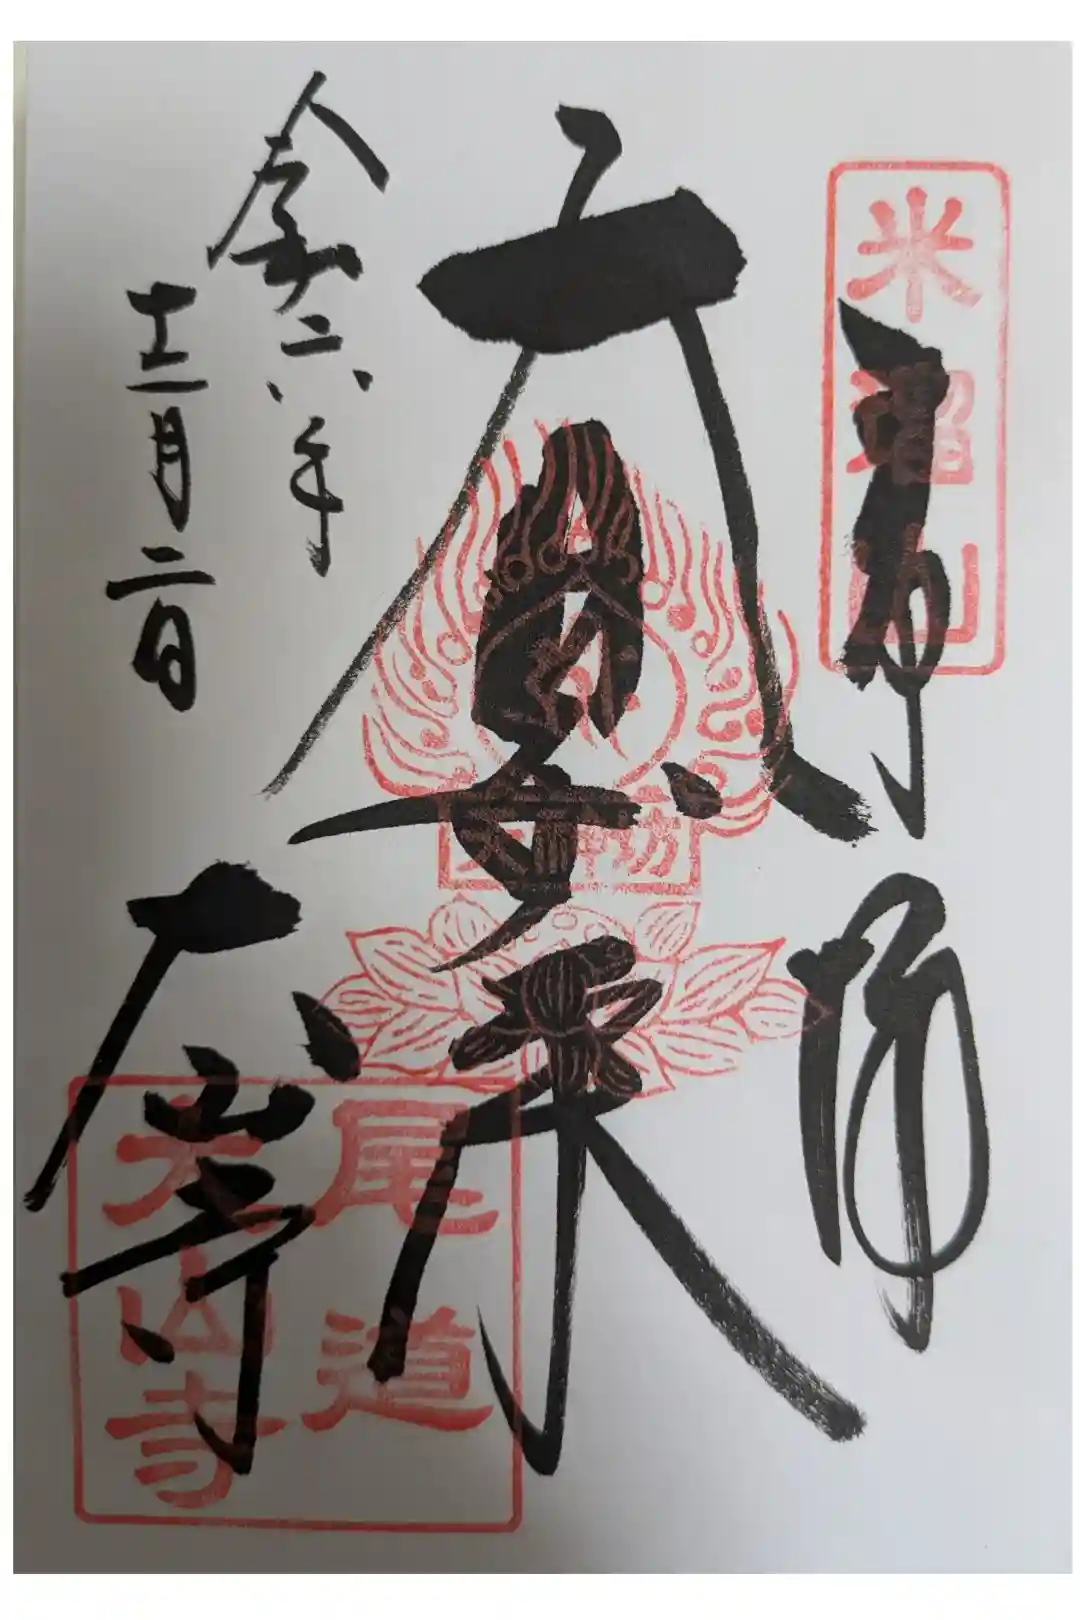 奉拝
大日如来
天神坊
大山寺
尾道
大山寺
令和六年
十二月二日